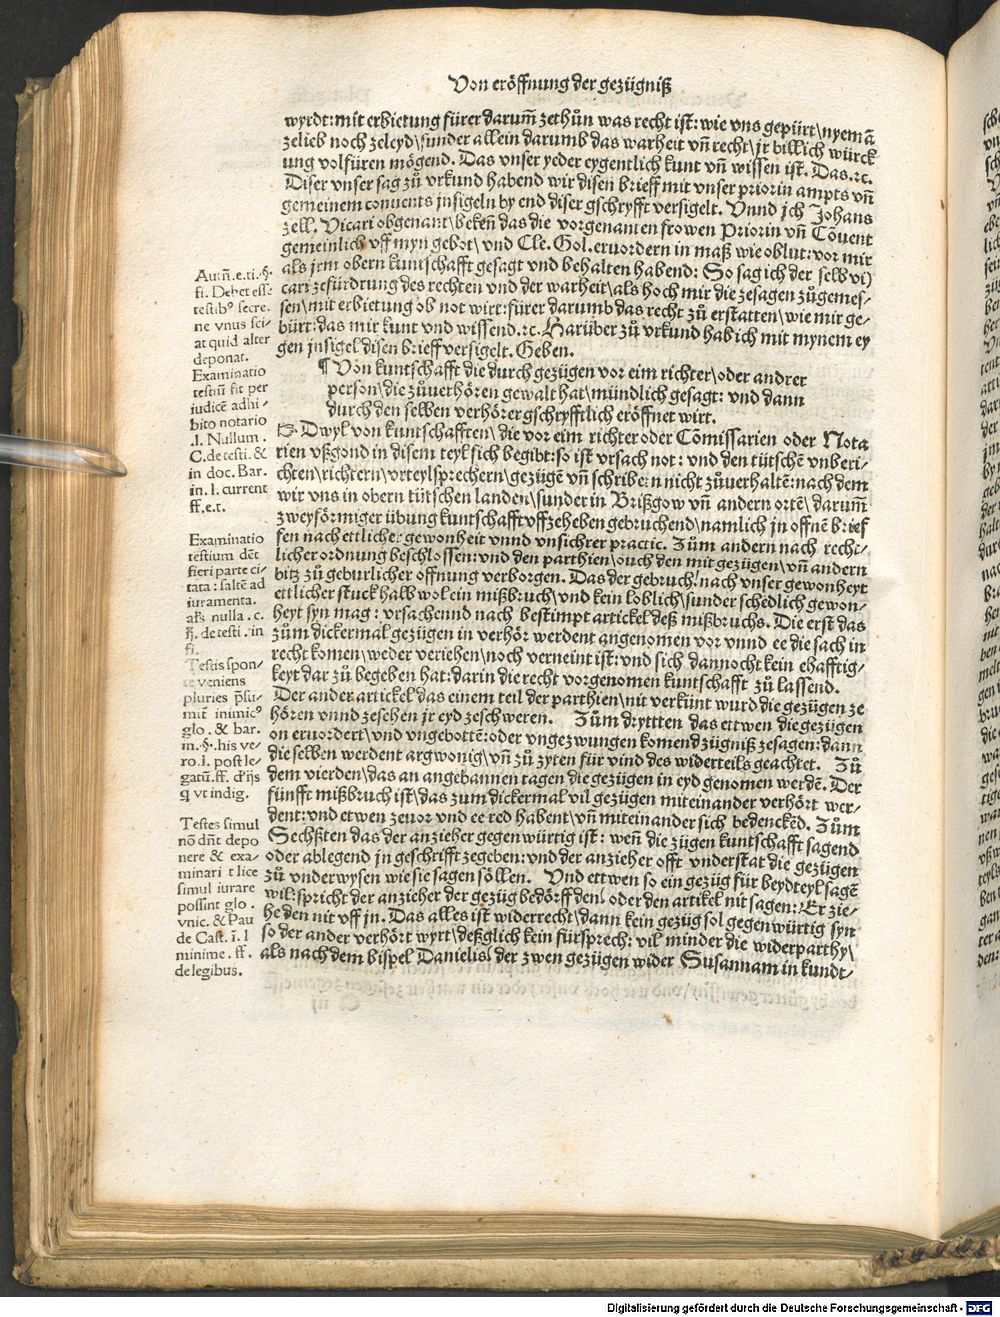 Von eröffnung der gezügniß
wyrdt: mit erbietung fürer darum̄ zethůn was recht ist: wie vns gepürt\nyemā
zelieb noch zeleyd\sunder allein darumb das warheit vn̄ recht\jr billich würck
ung volfüren mögend. Das vnser yeder eygentlich kunt vn̄ wissen ist. Das.⁊c.
Diser vnser sag zů vrkund habend wir disen brieff mit vnser priorin ampts vn̄
gemeinem conuents jnsigeln by end diser gschryfft versigelt. Vnnd jch Johans
zell. Vicari obgenant\beken̄ das die vorgenanten frowen Priorin vn̄ Cōuent
gemeinlich vff myn gebot\vnd Cle. Gol. eruordern in maß wie oblut: vor mir
als jrm obern kuntschafft gesagt vnd behalten habend: So sag ich der selb vi⸗
cari zefürdrung des rechten vnd der warheit\als hoch mir die zesagen zůgemes⸗
sen\mit erbietung ob not wirt: fürer darumb das recht zů erstatten\wie mir ge⸗
bürt: das mir kunt vnd wissend.⁊c. Harüber zů vrkund hab ich mit mynem ey
gen jnsigel disen brieff versigelt. Geben.
¶ Von kuntschafft die durch gezügen vor eim richter\oder andrer
person\die zůuerhören gewalt hat\mündlich gesagt: vnd dann
durch den selben verhörer gschryfftlich eröffnet wirt.
Dwyl von kuntschafften\die vor eim richter oder Cōmissarien oder Nota
rien vßgond in disem teyl sich begibt: so ist vrsach not: vnd den tütschē vnberi⸗
chten\richtern\vrteylsprechern\gezügē vn̄ schribern nicht zůuerhaltē: nach dem
wir vns in obern tütschen landen\sunder in Brißgow vn̄ andern ortē\darum̄
zweyförmiger übung kuntschafft vffzeheben gebruchend\namlich jn offnē brief
fen nach ettlicher gewonheit vnnd vnsichrer practic. Zům andern nach recht⸗
licher ordnung beschlossen: vnd den parthien\ouch den mit gezügen\vn̄ andern
bitz zů geburlicher offnung verborgen. Das der gebruch\nach vnser gewonheyt
ettlicher stuck halb wol ein mißbruch\vnd kein loblich\sunder schedlich gewon⸗
heyt syn mag: vrsachennd nach bestimpt artickel deß mißbruchs. Die erst das
zům dickermal gezügen in verhör werdent angenomen vor vnnd ee die sach in
recht komen\weder veriehen\noch verneint ist: vnd sich dannocht kein ehafftig⸗
keyt dar zů begeben hat: darin die recht vorgenomen kuntschafft zů lassend.
Der ander artickel das einem teil der parthien\nit verkünt wurd die gezügen ze
hören vnnd zesehen jr eyd zeschweren. Zům drytten das ettwen die gezügen
on eruordert\vnd vngebottē: oder vngezwungen komend zügniß zesagen: dann
die selben werdent argwonig\vn̄ zů zyten für vind des widerteils geachtet. Zů
dem vierden\das an angebannen tagen die gezügen in eyd genomen werdē. Der
fünfft mißbruch ist\das zum dickermal vil gezügen miteinander verhört wer⸗
dent: vnd etwen zeuor vnd ee red habent\vn̄ miteinander sich bedenckēd. Zům
Sechßten das der anzieher gegenwürtig ist: wen̄ die zügen kuntschafft sagend
oder ablegend jn geschrifft zegeben: vnd der anzieher offt vnderstat die gezügen
zů vnderwysen wie sie sagen söllen. Vnd ettwen so ein gezüg für beyd teyl sagē
wil: spricht der anzieher der gezüg bedörff den\oder den artikel nit sagen: Er zie⸗
he den nit vff jn. Das alles ist widerrecht\dann kein gezüg sol gegenwürtig syn
so der ander verhört wyrt\deßglich kein fürsprech: vil minder die widerparthy\
als nach dem bispel Danielis\der zwen gezügen wider Susannam in kundt⸗
Autn̄.e.ti.§.
fi. Debet esse
testib⁹ secre.
ne vnus sci⸗
at quid alter
deponat.
Examinatio
testiū fit per
iudicē adhi⸗
bito notario
.l. Nullum.
C. de testi. &
in doc. Bar.
in. l. current
ff.e.t.
Examinatio
testium dēt
fieri parte ci⸗
tata: saltē ad
iuramenta.
als nulla. c.
de testi. in
fi.
Testis spon⸗
te veniens
pluries p̄su⸗
mit̄ inimic⁹
glo. & bar.
in.§. his ve⸗
ro.l. post le⸗
gatū.ff. d'ijs
q vt indig.
Testes simul
nō dn̄t depo
nere & exa⸗
minari t lice
simul iurare
possint glo.
vnic. & Pau
de Cast. ī. l
minime. ff.
de legibus.
Digitalisierung gefördert durch die Deutsche Forschungsgemeinschaft - DFG